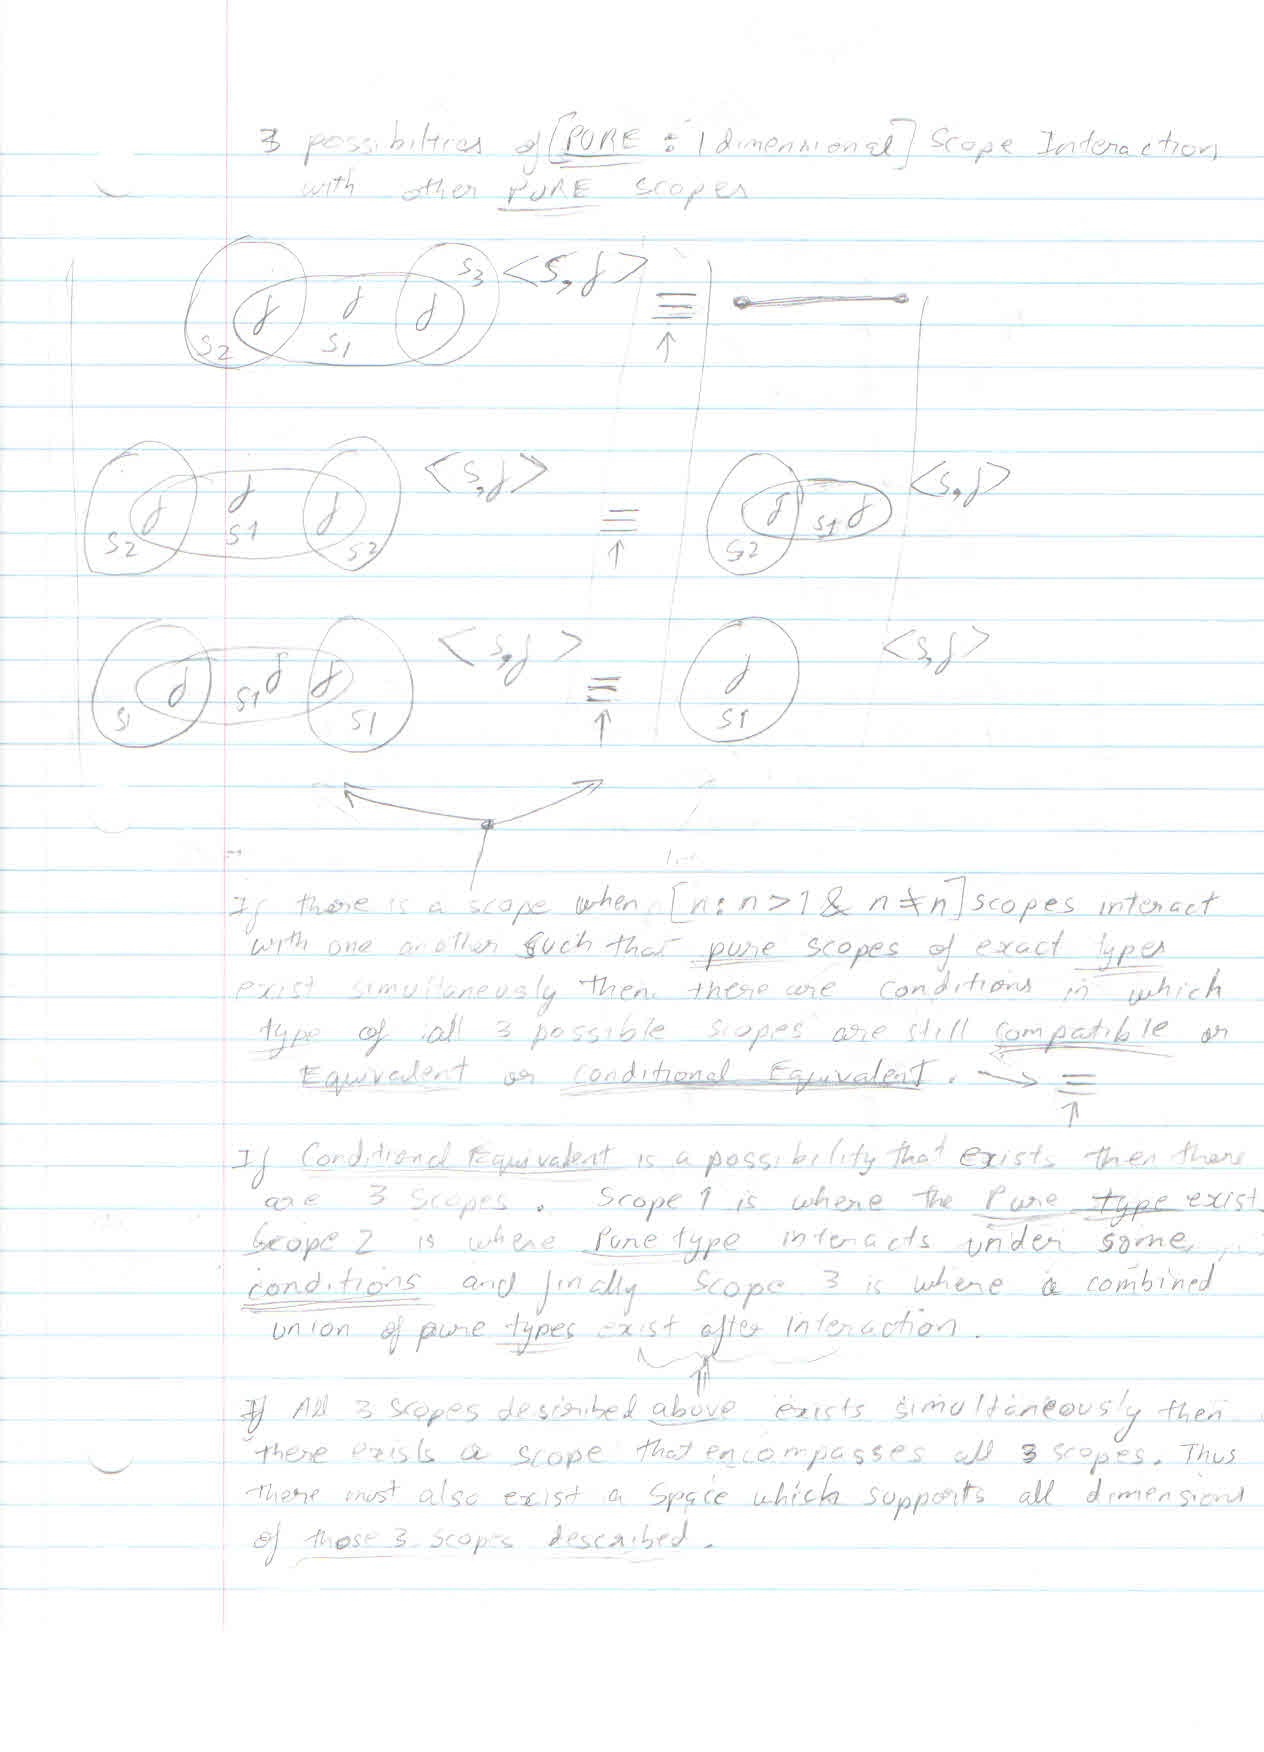 3 possibilties of [PURE : 1 dimensional] Scope Interaction
with other PURE scopes
S2 f f S1 f S3 <S, f> ≡ ↑
S2 f f S1 f S2 <S, f> ≡ ↑ S2 f S1 f <S, f>
S1 f S1 f f S1 <S, f> ≡ ↑ f S1 <S, f>
If there is a scope when [n : n > 1 & n ≠ n] scopes interact
with one another such that pure scopes of exact types
exist simultaneously then there are conditions in which
type of all 3 possible scopes are still compatible or
Equivalent or conditional Equivalent. → ≡ ↑
If Conditional Equivalent is a possibility that exists then there
are 3 scopes. Scope 1 is where the Pure type exist.
Scope 2 is where Pure type interacts under some
conditions and finally Scope 3 is where a combined
union of pure types exist after interaction.
If All 3 scopes described above exists simultaneously then
there exists a scope that encompasses all 3 scopes. Thus
there must also exist a Space which supports all dimensions
of those 3 scopes described.